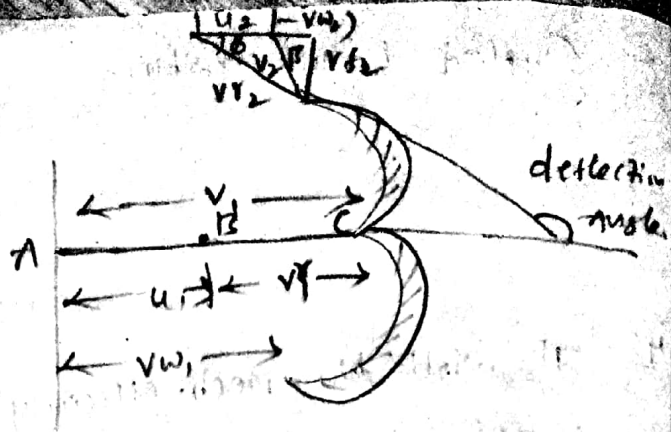 u2 -Vw2)
ϕ V2 β Vf2
Vr2
deflection
Angle
V1
B C
A
u1 Vr1
Vw1